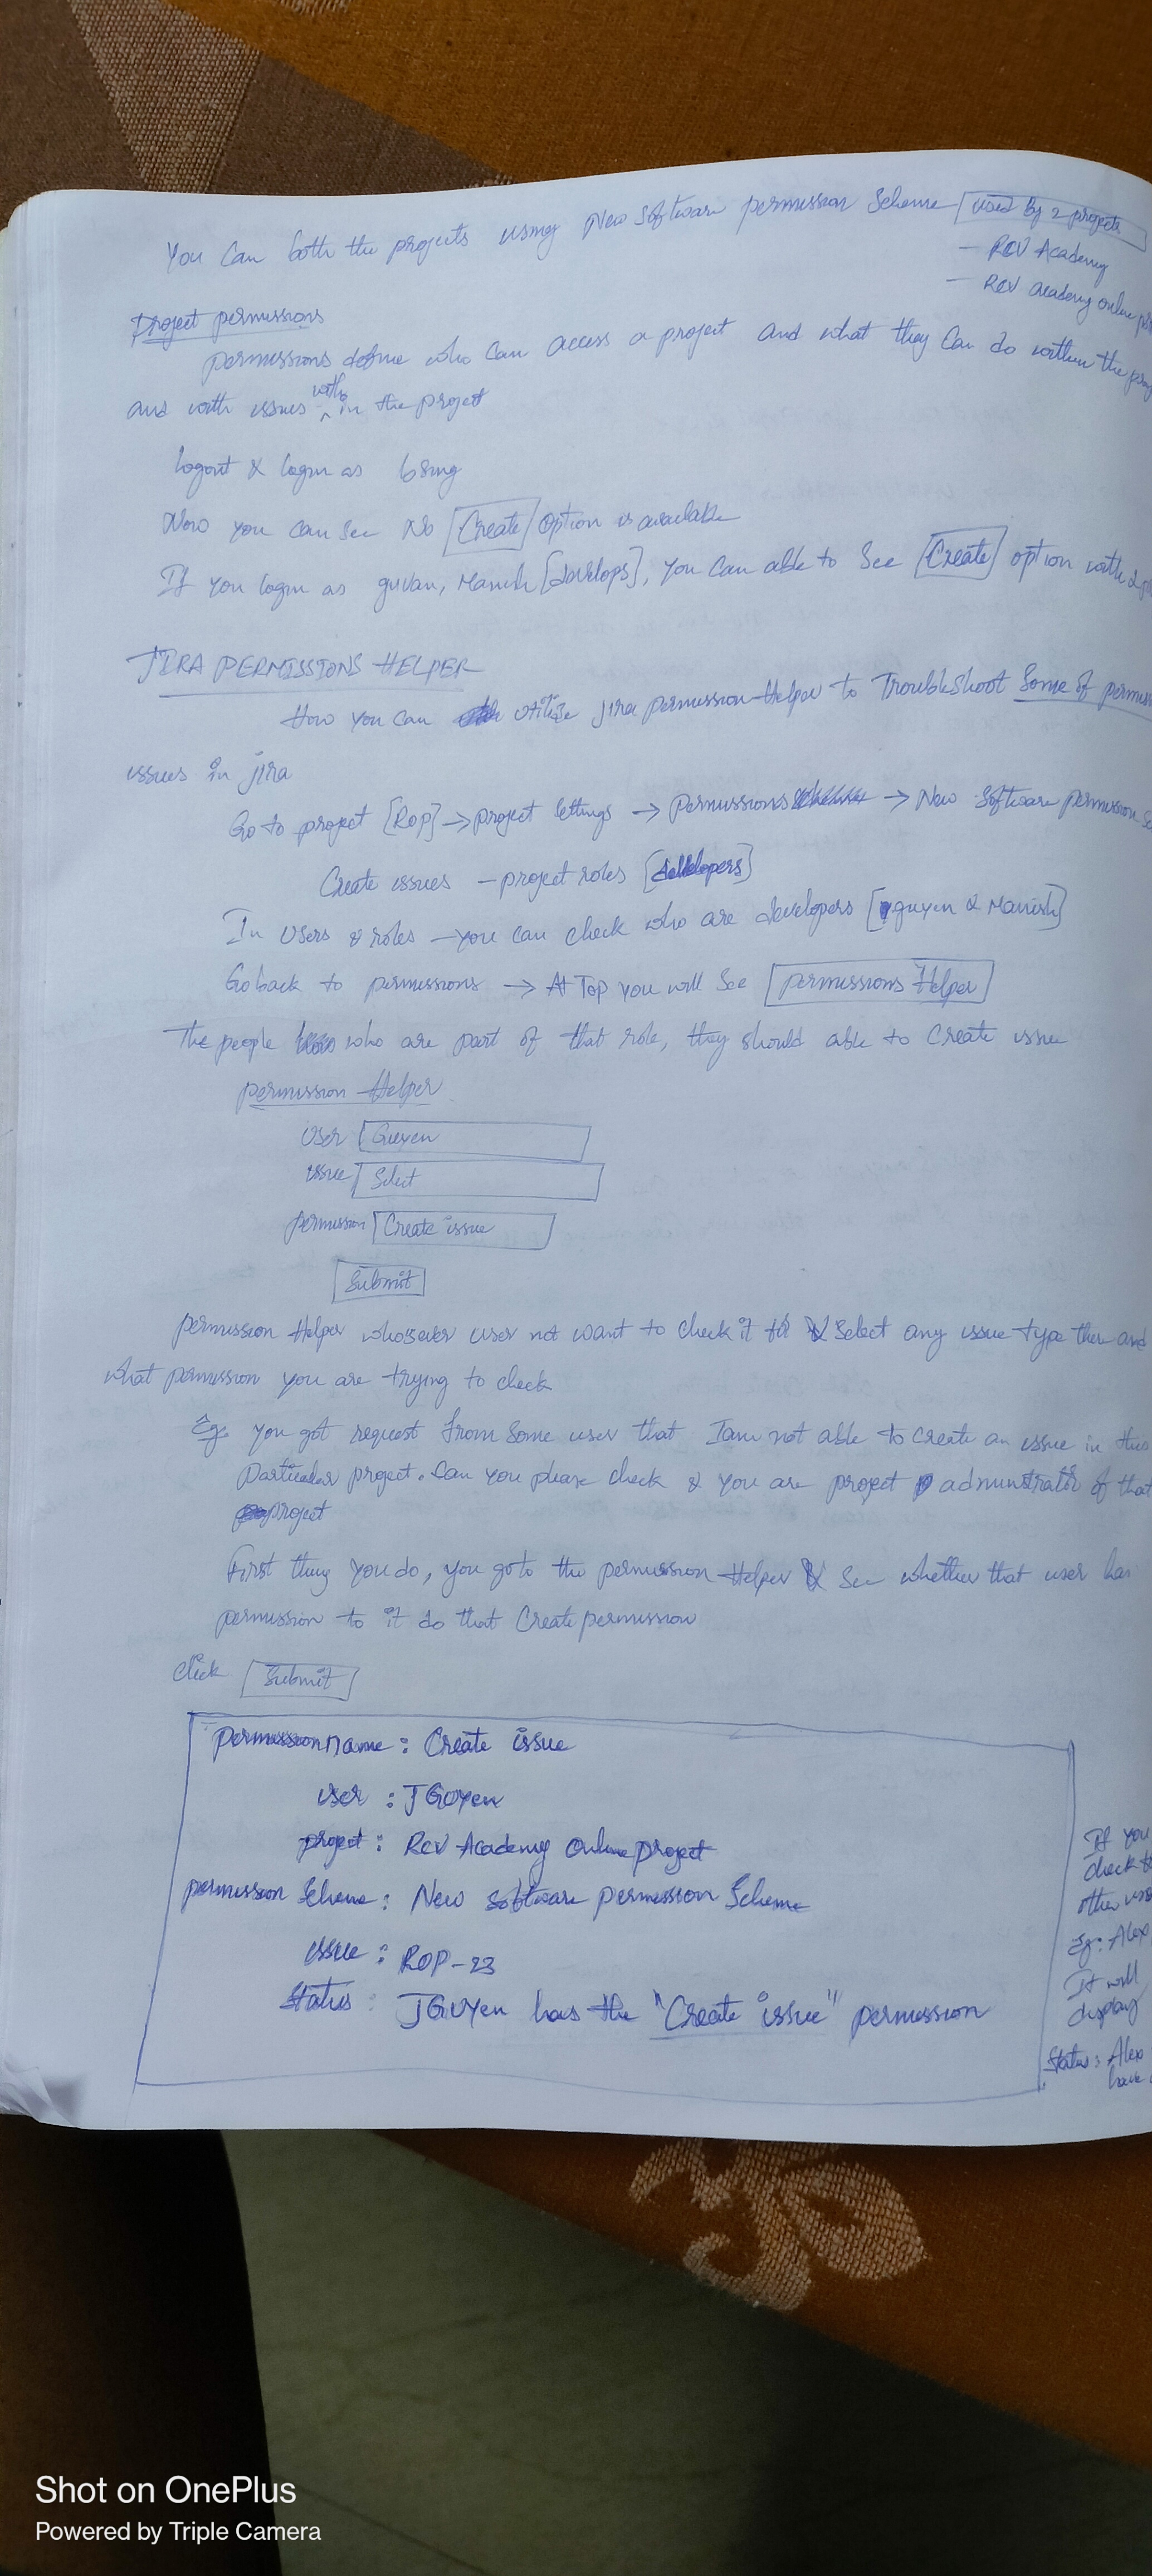 You Can both the projects using New Software permission Scheme [used by 2 projects]
- RCV Academy
- RCV academy online
Project permissions
permissions define who can access a project and what they can do within the
and with issues within the project
logout & login as
Now you can see No [Create] Option is available
If you login as Manish [develops], You can able to See [Create] option with
JIRA PERMISSIONS HELPER
How you can utilize jira permission Helper to Troubleshoot Some of
issues in jira
Go to project [ROP] → project settings → permissions → New Software permission
Create issues - project roles [developers]
In Users & roles - you can check who are developers [guyen & Manish]
Go back to permissions → At Top you will see [permissions Helper]
The people who are part of that role, they should able to create issue
permission Helper
User [Guyen]
issue [Select]
permission [Create issue]
[Submit]
permission Helper whosever user not want to check it Select any issue type then and
what permission you are trying to check
Eg. you got request from some user that I am not able to create an issue in this
particular project. Can you please check & you are project administrator of that
project
First thing you do, you go to the permission Helper & See whether that user has
permission to it do that Create permission
click [Submit]
permission name : Create issue
user : JGuyen
project : RCV Academy Online project
permission Scheme : New software permission Scheme
issue : ROP-23
Status : JGUYen has the "Create issue" permission
If you
check
other
Eg: Alex
It will
display
Status: Alex
have
Shot on OnePlus
Powered by Triple Camera